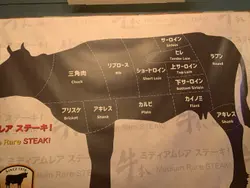 サーロイン
Sirloin
ヒレ
Tender Loin
三角肉
Chuck
リブロース
Rib
ショートロイン
Short Loin
上サーロイン
Top Loin
下サーロイン
Bottom Sirloin
ラブン
Round
ブリスケ
Brisket
アキレス
Shank
カルビ
Plate
カイノミ
Flank
アキレス
Shank
ミディアムレア ステーキ!
Medium Rare STEAK!
ミディアムレア ステーキ!
Medium Rare STEAK!